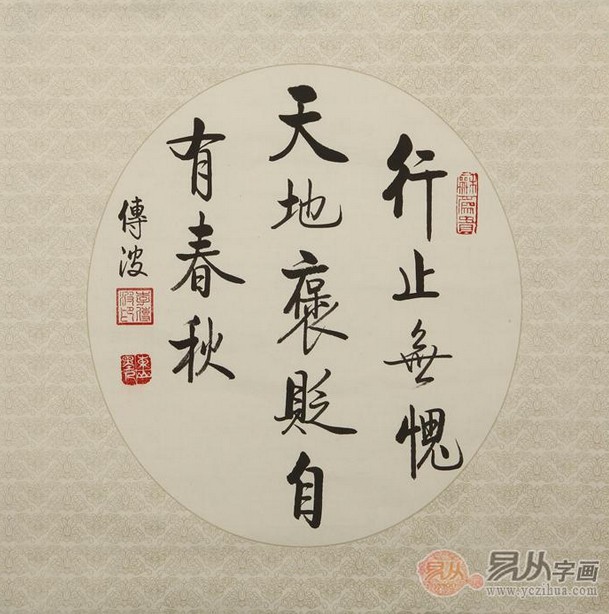 行止無愧
天地褒貶自
有春秋
傳波
易从字画
www.yczihua.com